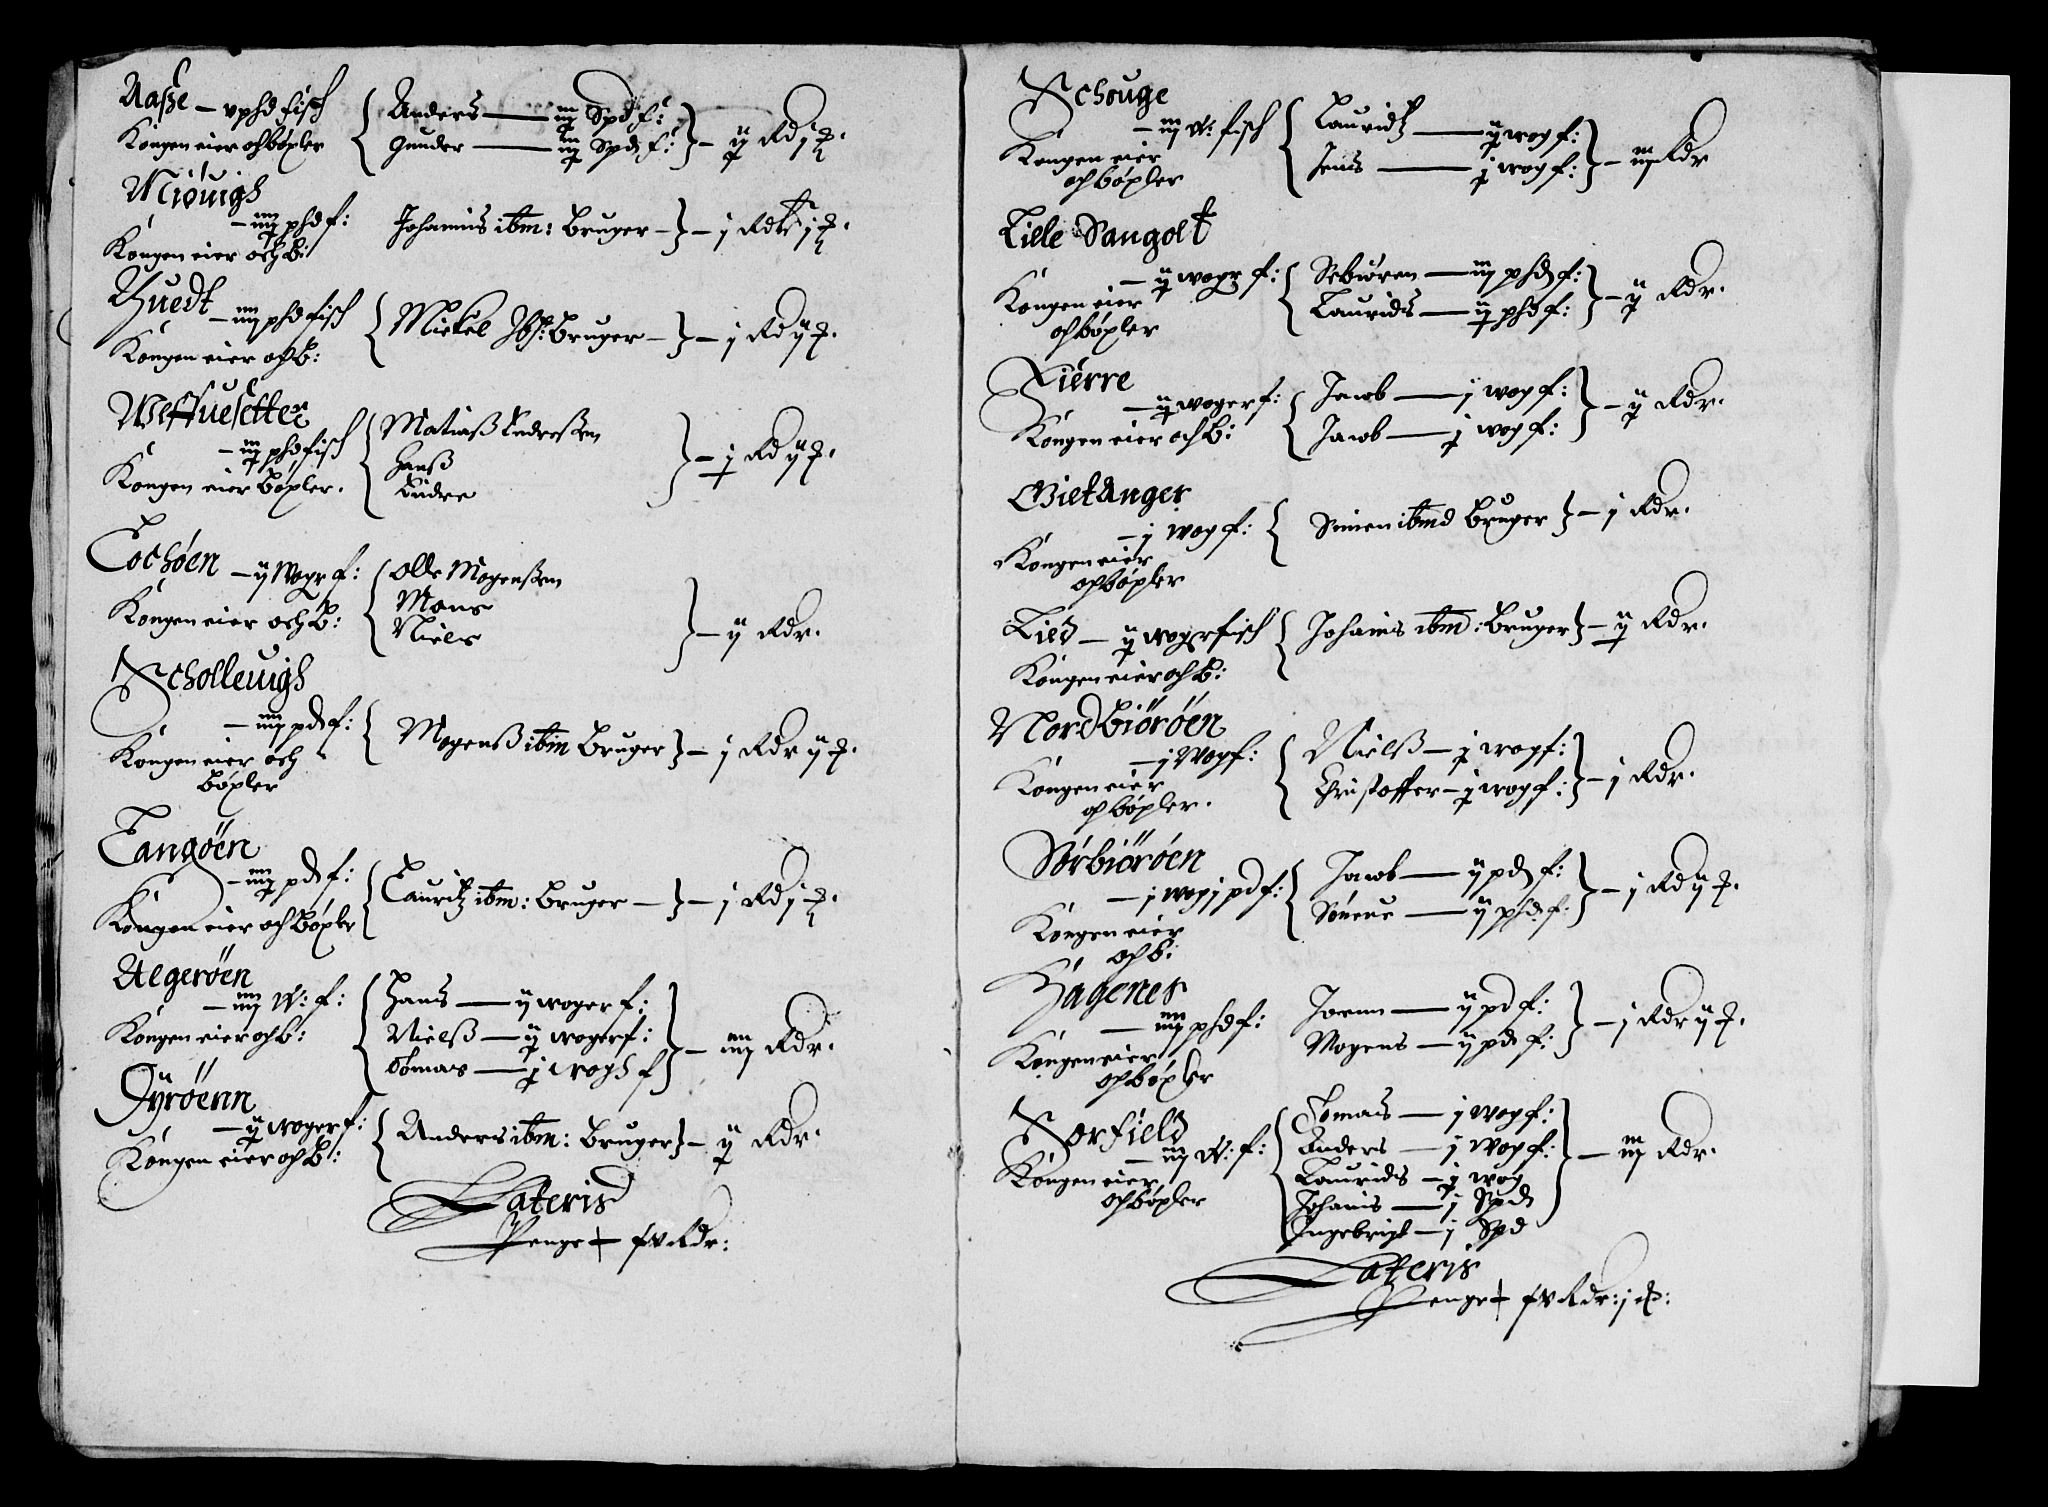 Aaße – v phd fisch
Kongen eier och böxler
Anders — iij Spd f:
Gunder — iij Spd f:
– ij Rd j
Miöuigh
– iiij phd f:
Kongen eier och b:
Johannis ibm: Bruger – j Rd j
Huedt – iiij phd fisch
Kongen eier och b:
Mickel Ibß: Bruger – j Rd ij
Weffuesetter
– iij phd fisch
Kongen eier böxler.
Matiaß Endreßen
Hanß
Endre
– j Rd ij
Tochöen – ij Wogr f:
Kongen eier och b:
Olle Mogenßen
Mons
Niels
– ij Rdr.
Schollewigh
– iiij pd f:
Kongen eier och
böxler
Mogenß ibm Bruger – j Rdr ij
Tangöen
– iiij pd f:
Kongen eier och böxler
Lauritz ibm: Bruger – j Rd j
Algeröen
– iiij W: f:
Kongen eier och b:
Hans — ij woger f:
Nielß — ij woger f:
Tomas — j wogh f
– iiij Rdr.
Dyröenn
– ij woger f:
Kongen eier och b:
Anders ibm: Bruger – ij Rdr.
Lateris
Penge f v Rdr:
Schouge
– iij W: fisch
Kongen eier
och böxler
Lauridtz — ij wog f:
Jens — j wog f:
– iij Rdr
Lille Sangolt
– ij wogr f:
Kongen eier
och böxler
Sebiören — iij phd f:
Laurids — ij phd f:
– ij Rdr.
Kierre
– ij woger f:
Kongen eier och b:
Jacob — j wog f:
Jacob — j wog f:
– ij Rdr.
Vietanger
– j wog f:
Kongen eier
och böxler
Simen ibmd Bruger – j Rdr.
Lied – ij wogr fisch
Kongen eier och b:
Johanis ibm: Bruger – ij Rdr.
Nordbiöröen
– j Wog f:
Kongen eier
och böxler.
Nielß – j wog f:
Christoffer – j wog f:
– j Rdr.
Sörbiöröen
– j wog j pd f:
Kongen eier
och b:
Jacob — ij pd f:
Söneue — ij phd f:
– j Rd ij
Hagenes
– iiij phd f:
Kongen eier
och böxler
Joenn — ij pd f:
Mogens — ij pd f:
– j Rdr ij
Norfield
– iij W: f:
Kongen eier
och böxler
Tomas — j wog f:
Anders — j wog f:
Laurids – j wog
Johanis — j Spd
Ingebrigt – j Spd
– iij Rdr.
Lateris
Penge f v Rdr: j